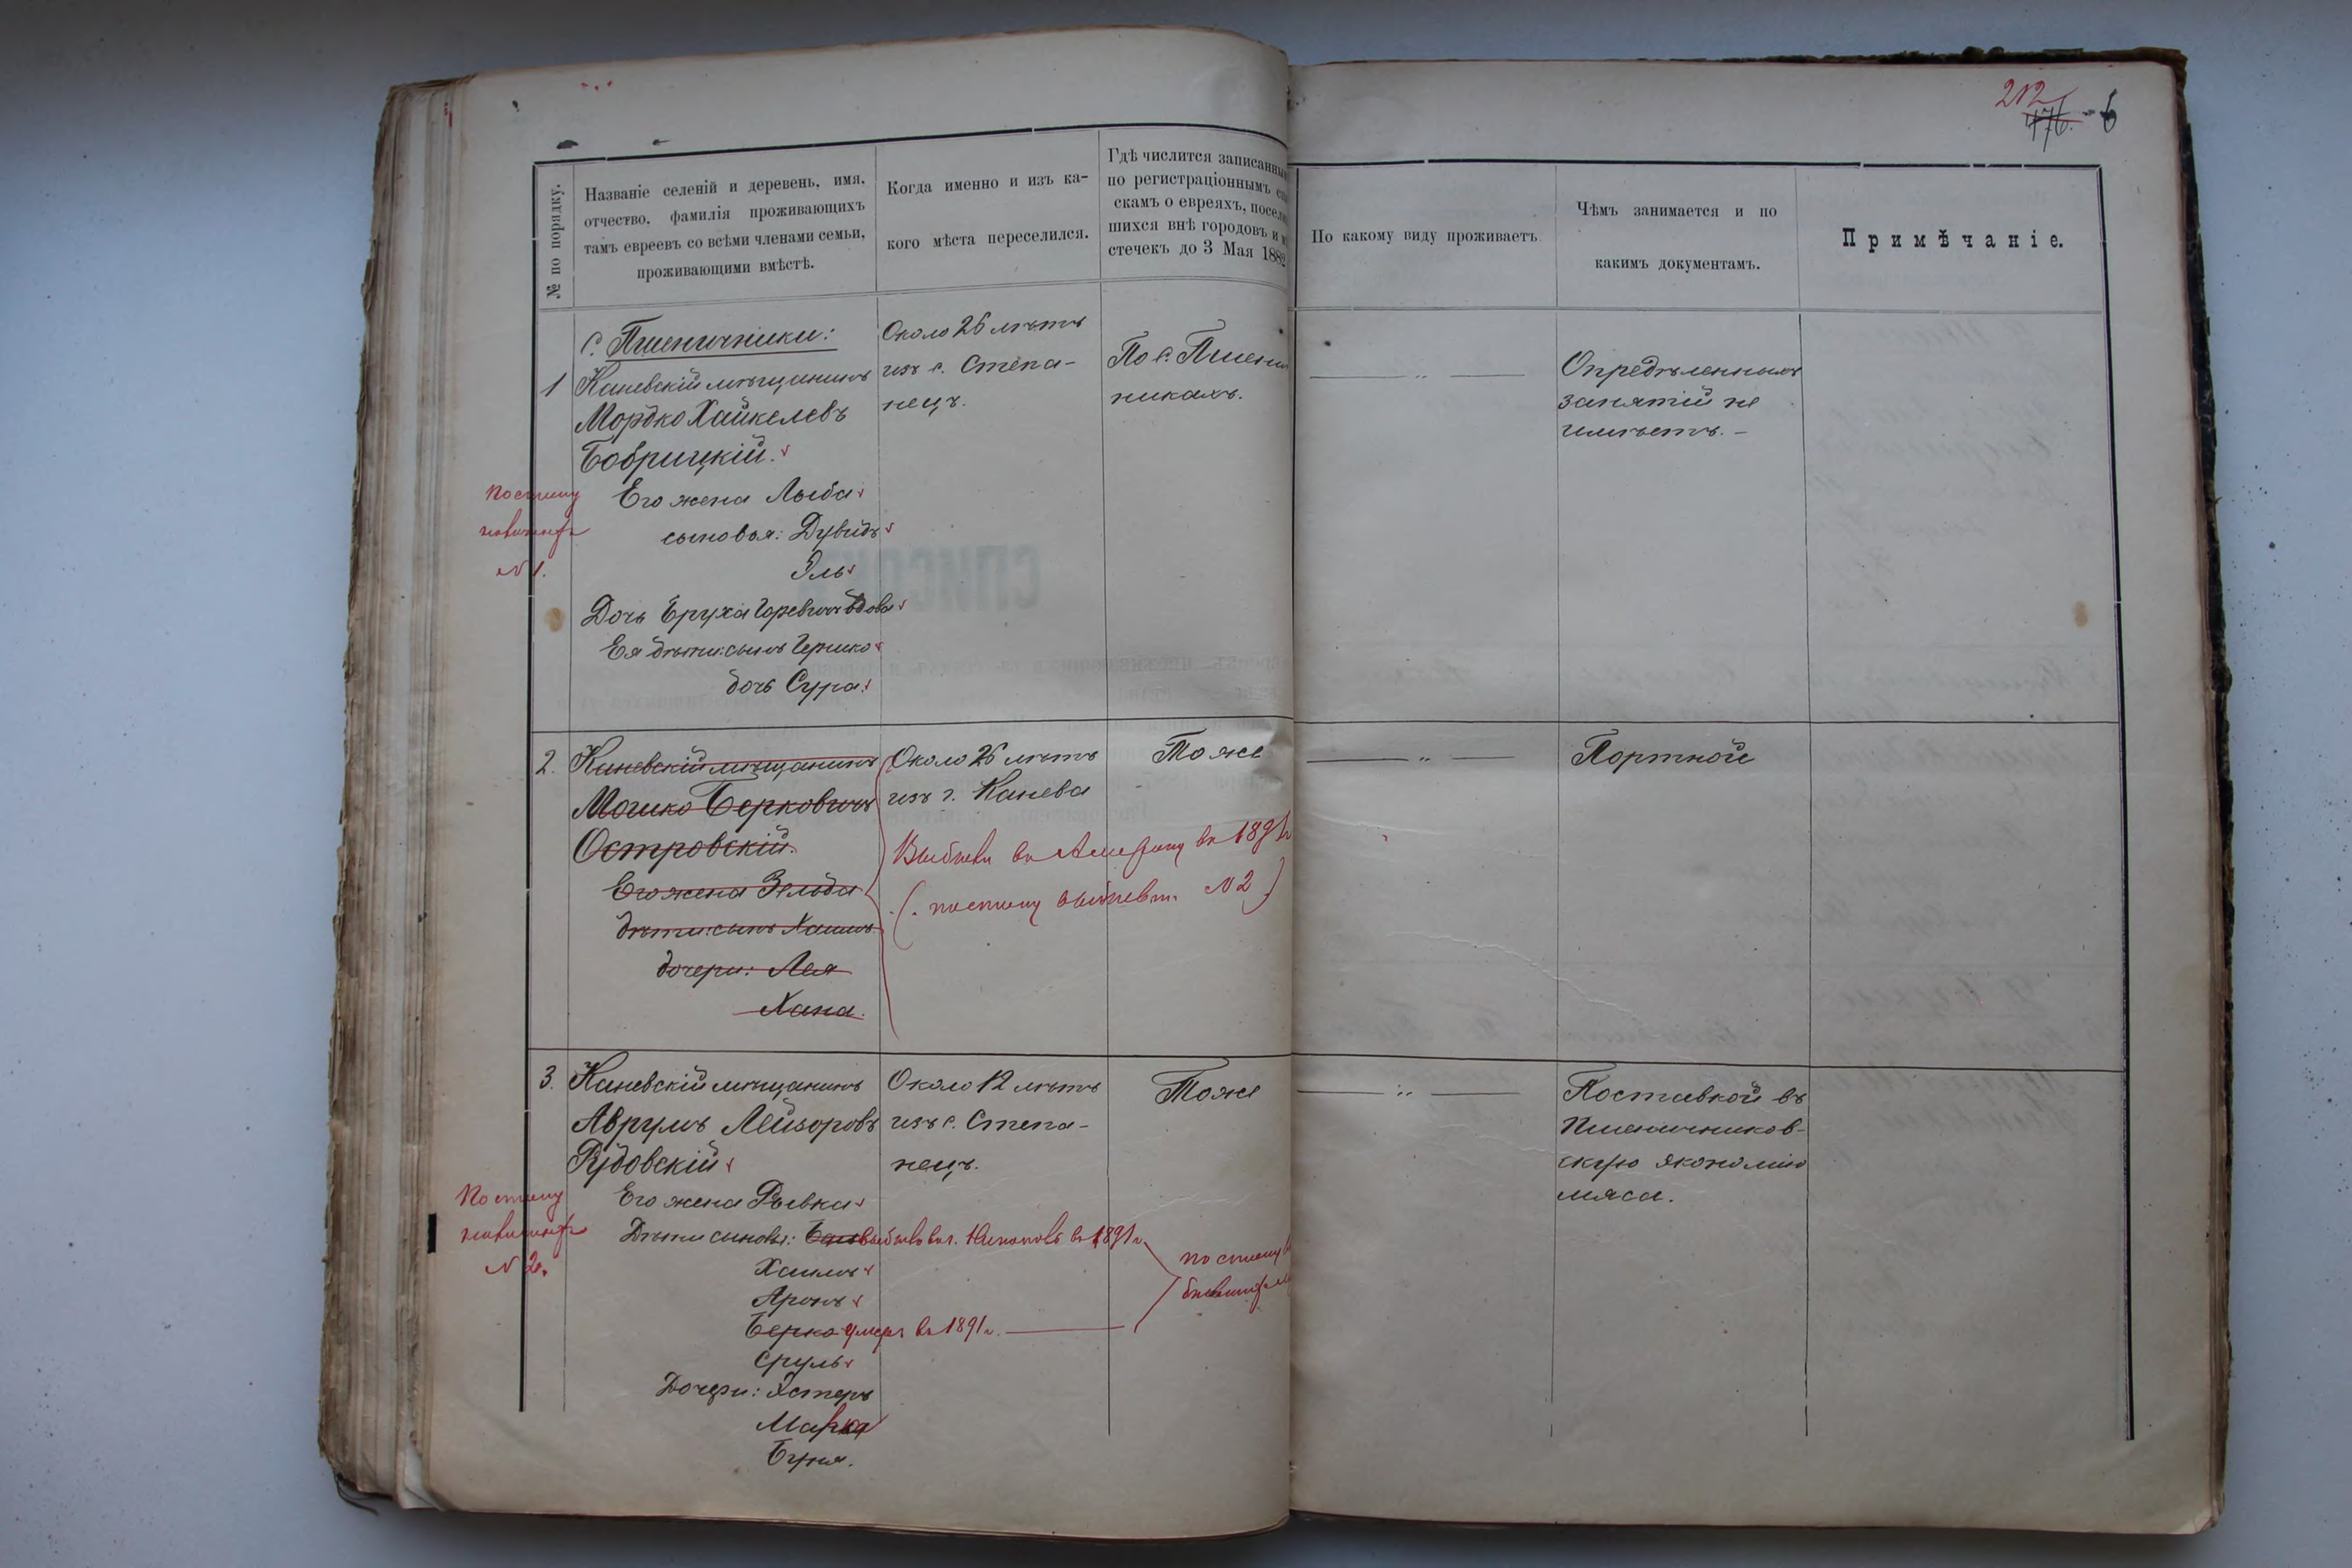 212
176. - 6
№ по порядку.
Названіе селеній и деревень, имя,
отчество, фамилія проживающихъ
тамъ евреевъ со всѣми членами семьи,
проживающими вмѣстѣ.
Когда именно и изъ ка-
кого мѣста переселился.
Гдѣ числится записанны
по регистраціоннымъ спи
скамъ о евреяхъ, поселив
шихся внѣ городовъ и м
стечекъ до 3 Мая 1882
По какому виду проживаетъ.
Чѣмъ занимается и по
какимъ документамъ.
Примѣчаніе.
с. Пшеничники:
1 Каневскій мѣщанинъ
Мордко Хайкелевъ
Бобрицкій.
Его жена Лыба
сыновья: Дувидъ
Эль
Дочь Еруха вдова
Ея дѣти: сынъ Гершко
дочь Сура
По списку
№ 1.
Около 26 лѣтъ
изъ с. Степа-
нецъ.
По с. Пшенич
никахъ.
— " —
Опредѣленныхъ
занятій не
имѣетъ. -
2. Каневскій мѣщанинъ
Мошко Берковичъ
Островскій.
Его жена Зельда
дѣти: сынъ Хаимъ.
дочери: Лея
Хана.
Около 26 лѣтъ
изъ г. Канева
Выбыли въ Америку въ 1891 г
(по списку выбывш. № 2)
Тоже
— " —
Портной
3. Каневскій мѣщанинъ
Аврумъ Лейзоровъ
Рудовскій
Его жена Рывка
Дѣти сыновья: выбылъ въ 1891 г.
Хаимъ
Аронъ
Берко умеръ въ 1891 г.
Сруль
Дочери: Эстеръ
Марья
Буня.
По списку
№ 2.
по списку вы
бывших
Около 12 лѣтъ
изъ с. Степа-
нецъ.
Тоже
— " —
Поставкой въ
Пшеничников-
скую экономію
мяса.